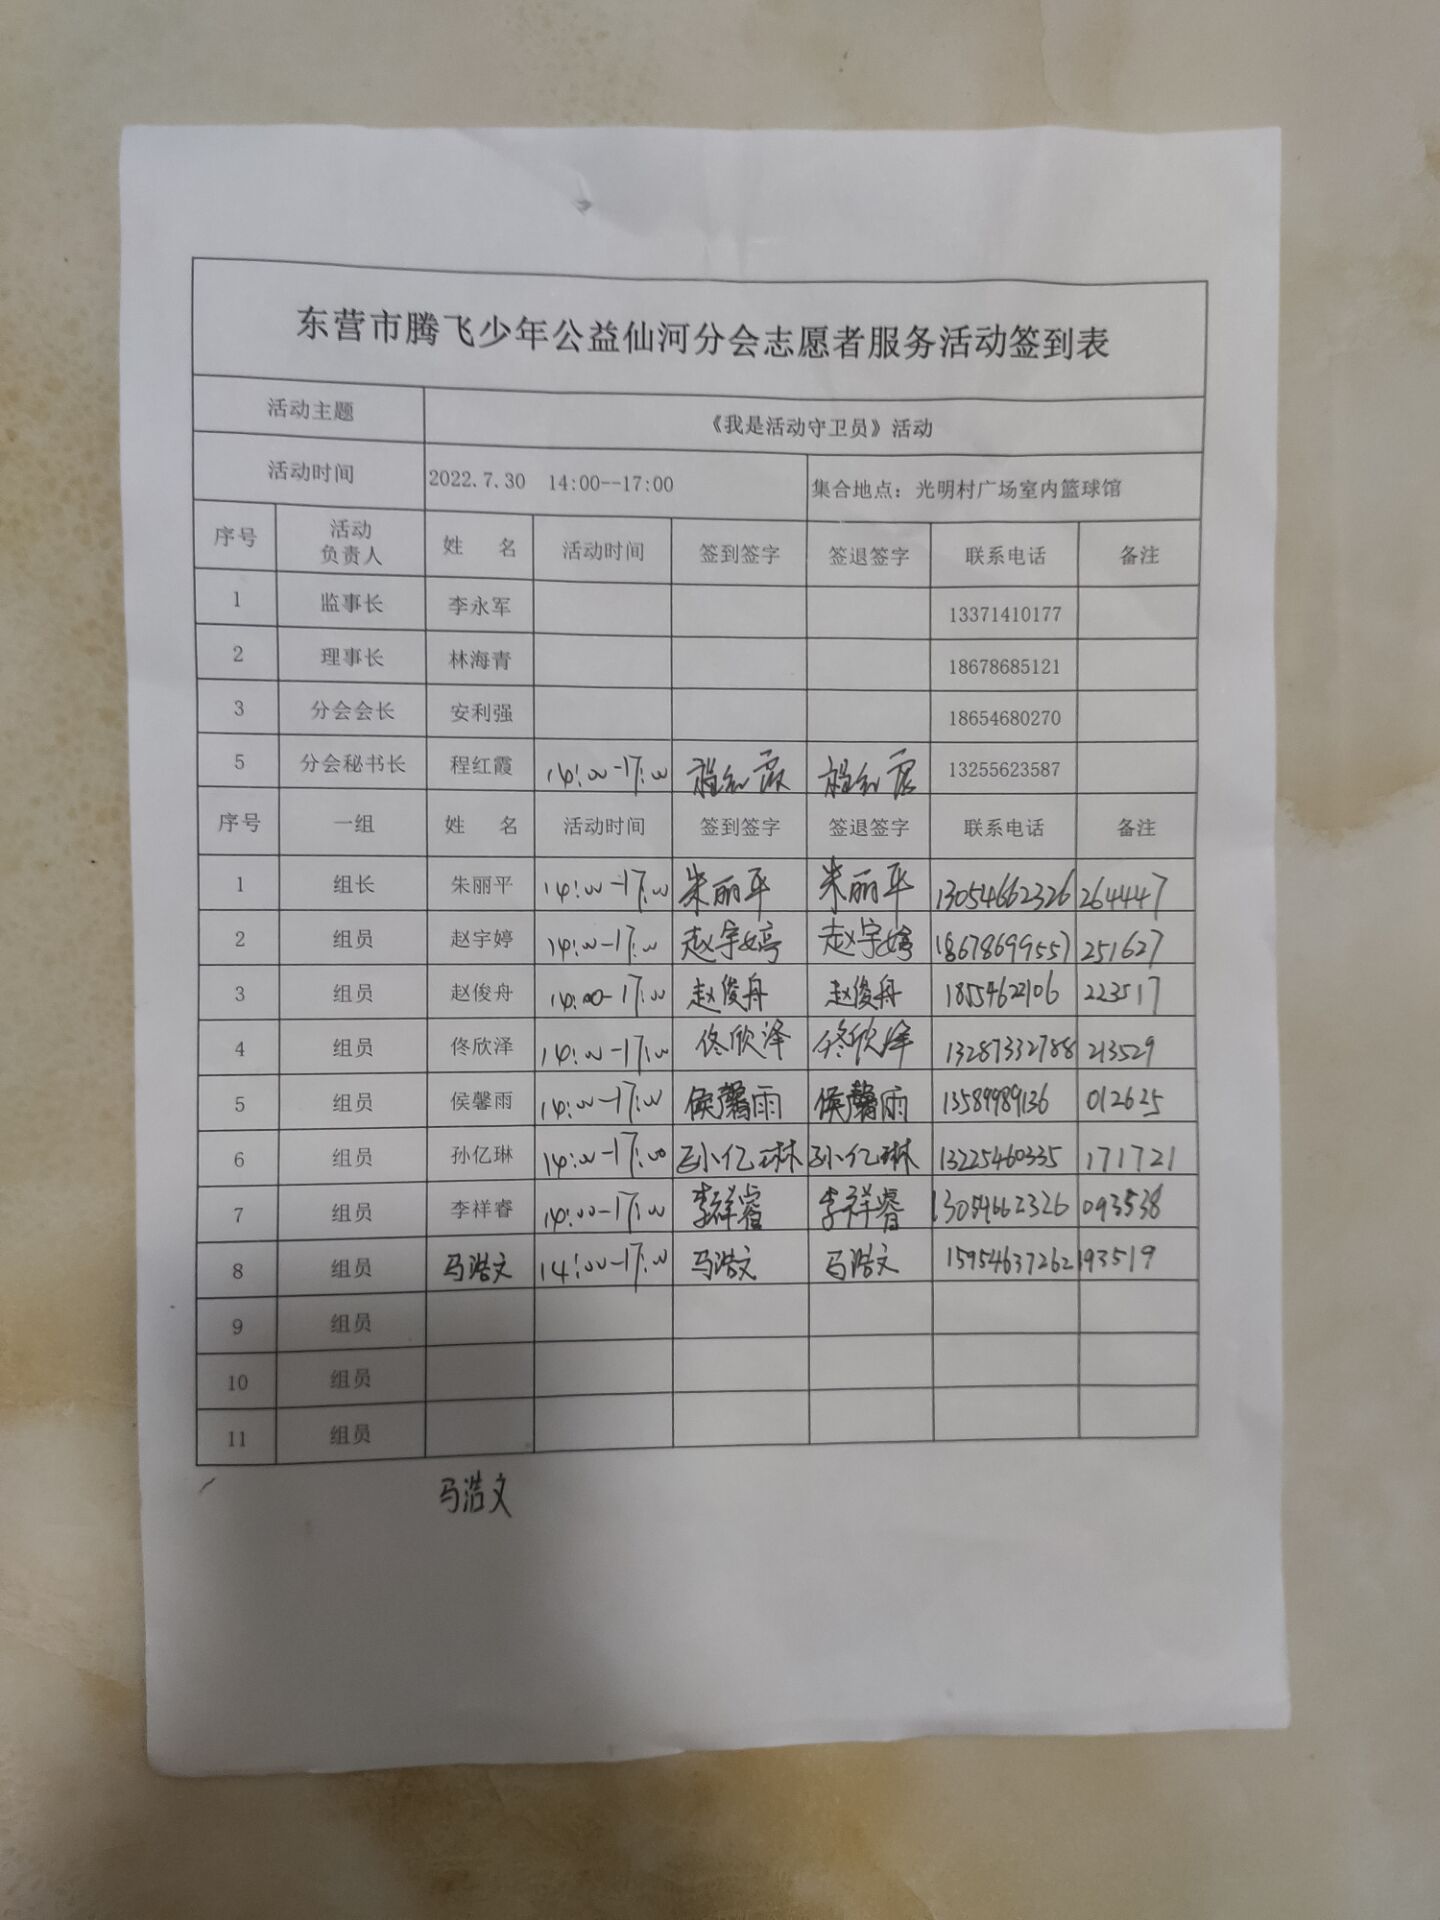 东营市腾飞少年公益仙河分会志愿者服务活动签到表
活动主题 《我是活动守卫员》活动
活动时间 2022.7.30 14:00--17:00 集合地点：光明村广场室内篮球馆
序号 活动负责人 姓 名 活动时间 签到签字 签退签字 联系电话 备注
1 监事长 李永军 13371410177
2 理事长 林海青 18678685121
3 分会会长 安利强 18654680270
5 分会秘书长 程红霞 14:00-17:00 程红霞 程红霞 13255623587
序号 一组 姓 名 活动时间 签到签字 签退签字 联系电话 备注
1 组长 朱丽平 14:00-17:00 朱丽平 朱丽平 13054662326 264447
2 组员 赵宇婷 14:00-17:00 赵宇婷 赵宇婷 18678699557 251627
3 组员 赵俊舟 14:00-17:00 赵俊舟 赵俊舟 18554622106 223517
4 组员 佟欣泽 14:00-17:00 佟欣泽 佟欣泽 13287332788 213529
5 组员 侯馨雨 14:00-17:00 侯馨雨 侯馨雨 13589989136 012625
6 组员 孙亿琳 14:00-17:00 孙亿琳 孙亿琳 13225460335 171721
7 组员 李祥睿 14:00-17:00 李祥睿 李祥睿 13054662326 093538
8 组员 马浩文 14:00-17:00 马浩文 马浩文 15954637262 193519
9 组员
10 组员
11 组员
马浩文